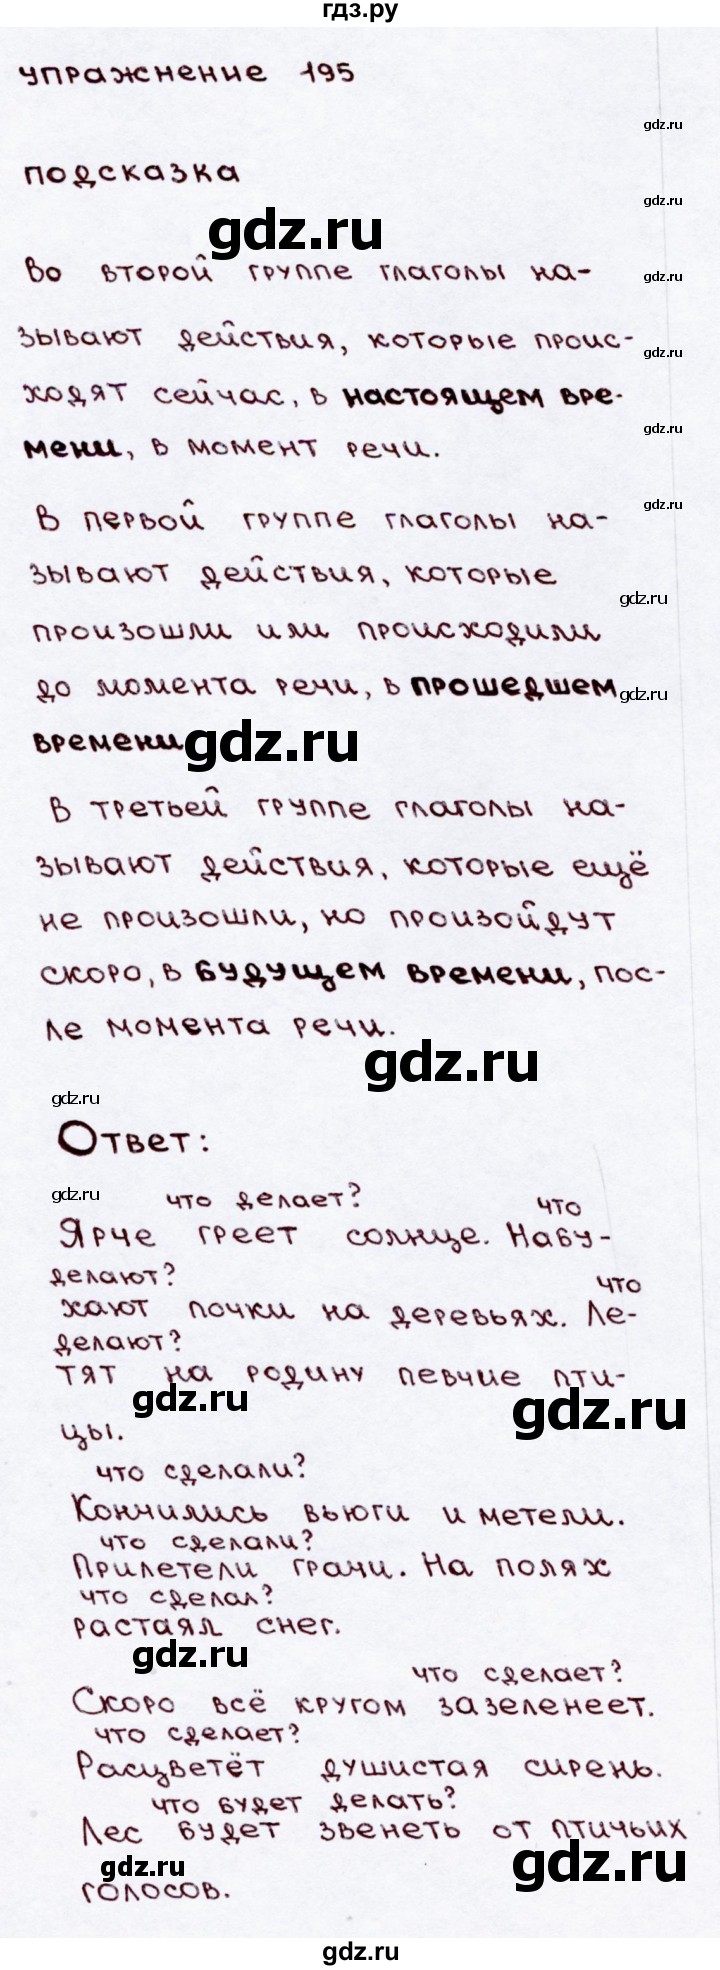 гдз.ру
упражнение 195
gdz.ru
подсказка
gdz.ru
gdz.ru
Во второй группе глаголы на-
gdz.ru
зывают действия, которые проис-
gdz.ru
ходят сейчас, в настоящем вре-
gdz.ru
мени, в момент речи.
gdz.ru
В первой группе глаголы на-
зывают действия, которые
gdz.ru
произошли или происходили
до момента речи, в прошедшем
gdz.ru
времени
gdz.ru
В третьей группе глаголы на-
зывают действия, которые ещё
не произошли, но произойдут
скоро, в будущем времени, пос-
ле момента речи.
gdz.ru
gdz.ru
Ответ:
gdz.ru
что делает? что
Ярче греет солнце. Набу-
делают? что
хают почки на деревьях. Ле-
делают?
тят на родину певчие пти-
gdz.ru
gdz.ru
цы.
что сделали?
Кончились вьюги и метели.
что сделали?
Прилетели грачи. На полях
что сделал?
растаял снег.
gdz.ru
что сделает?
Скоро всё кругом зазеленеет.
что сделает?
Расцветёт душистая сирень.
что будет делать?
Лес будет звенеть от птичьих
gdz.ru
gdz.ru
голосов.
gdz.ru